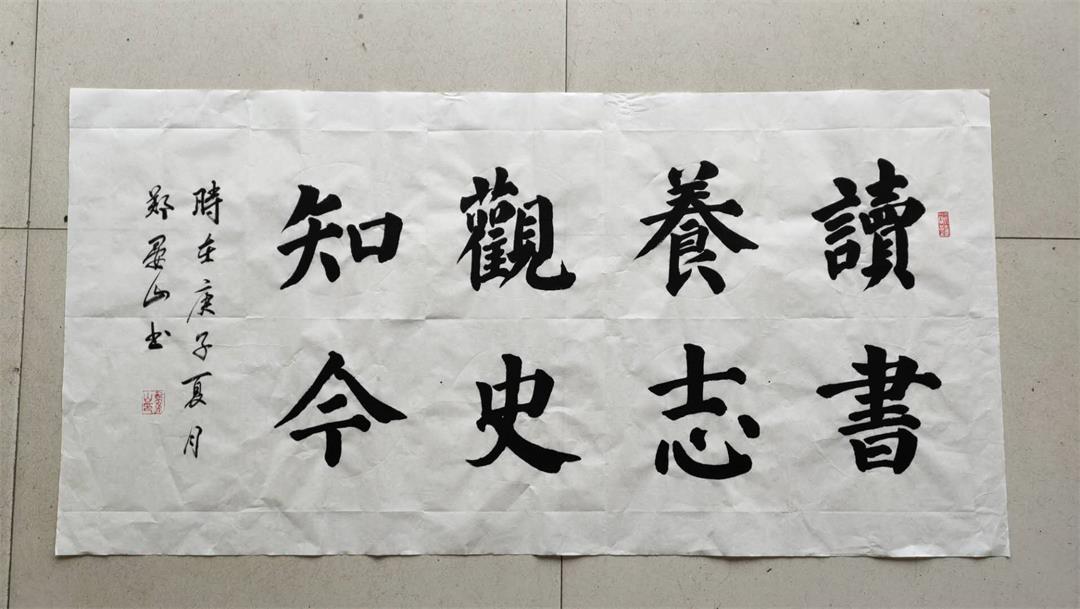 讀書
養志
觀史
知今
時在庚子夏月
鄭墨山书